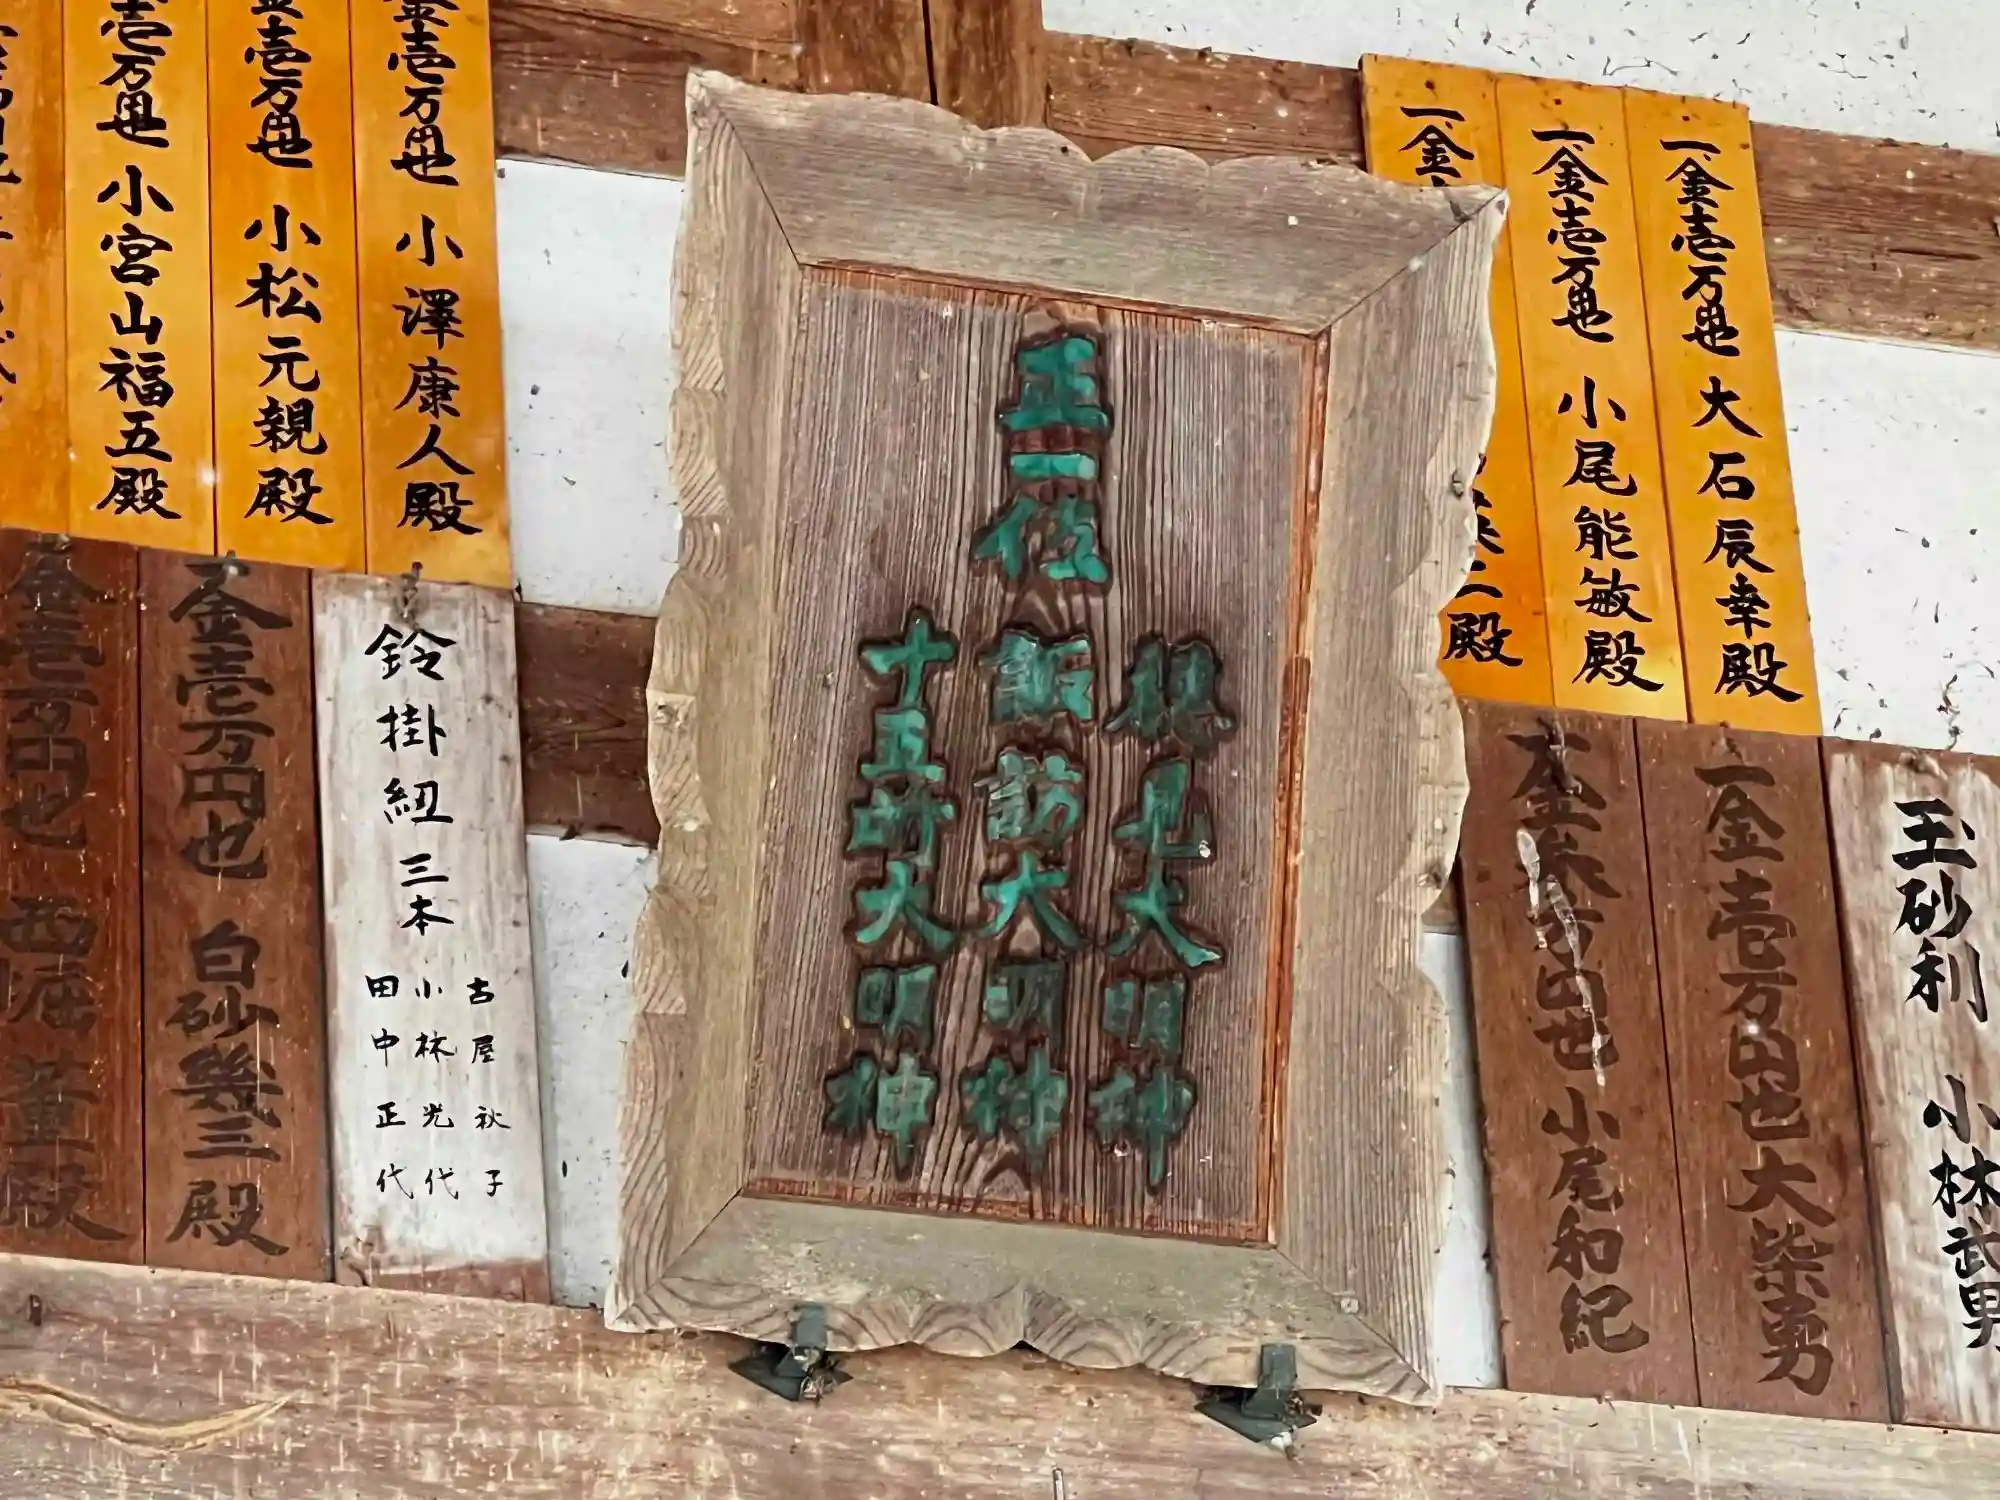 一金壱万円也 大石辰幸殿
一金壱万円也 小尾能敏殿
一金
二殿
玉砂利 小林武男
一金壱万円也 大柴勇
小尾和紀
正一位
見大明神
飯訪大明神
十五所大明神
金壱万円也 小澤康人殿
金壱万円也 小松元親殿
壱万円也 小宮山福五殿
鈴掛紐 三本
古屋秋子
小林光代
田中正代
一金壱万円也 白砂幾三殿
金壱万円也 西堀 董殿